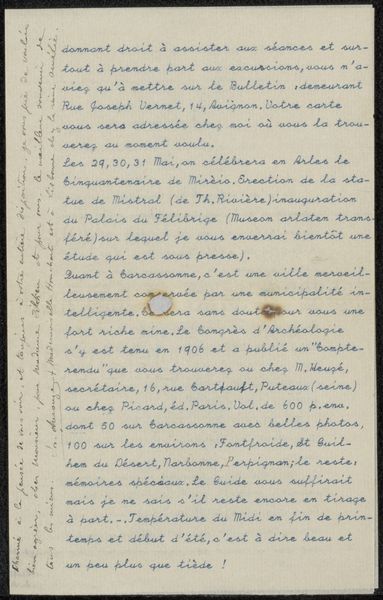 donnant droit à assister aux séances et sur-
tout à prendre part aux excursions, vous n'a-
viez qu'à mettre sur le Bulletin : demeurant
Rue Joseph Vernet, 14, Avignon. Votre carte
vous sera adressée chez moi où vous la trou-
verez au moment voulu.
Les 29, 30, 31 Mai, on célébrera en Arles le
Cinquantenaire de Mirèio. Erection de la sta-
tue de Mistral (de Th. Rivière) inauguration
du Palais du Félibrige (Museon arlaten trans-
féré) sur lequel je vous enverrai bientôt une
étude qui est sous presse).
Quant à Carcassonne, c'est une ville merveil-
leusement conservée par une municipalité in-
telligente. Ce sera sans doute pour vous une
fort riche mine. Le Congrès d'Archéologie
s'y est tenu en 1906 et a publié un "Compte-
rendu" que vous trouverez ou chez M. Heuzé,
secrétaire, 16, rue Cartault, Puteaux (seine)
ou chez Picard, éd. Paris. Vol. de 600 p. env.
dont 50 sur Carcassonne avec belles photos,
100 sur les environs : Fontfroide, St Guil-
hem du Désert, Narbonne, Perpignan; le reste:
mémoires spéciaux. Le Guide vous suffirait
mais je ne sais s'il reste encore en tirage
à part.-. Température du Midi en fin de prin-
temps et début d'été, c'est à dire beau et
un peu plus que tiède !
Charmé à la pensée de vous voir et toujours à votre entière disposition, je vous prie de vouloir
bien agréer, cher Monsieur, pour Madame et pour vous le meilleur souvenir de
tous les miens.